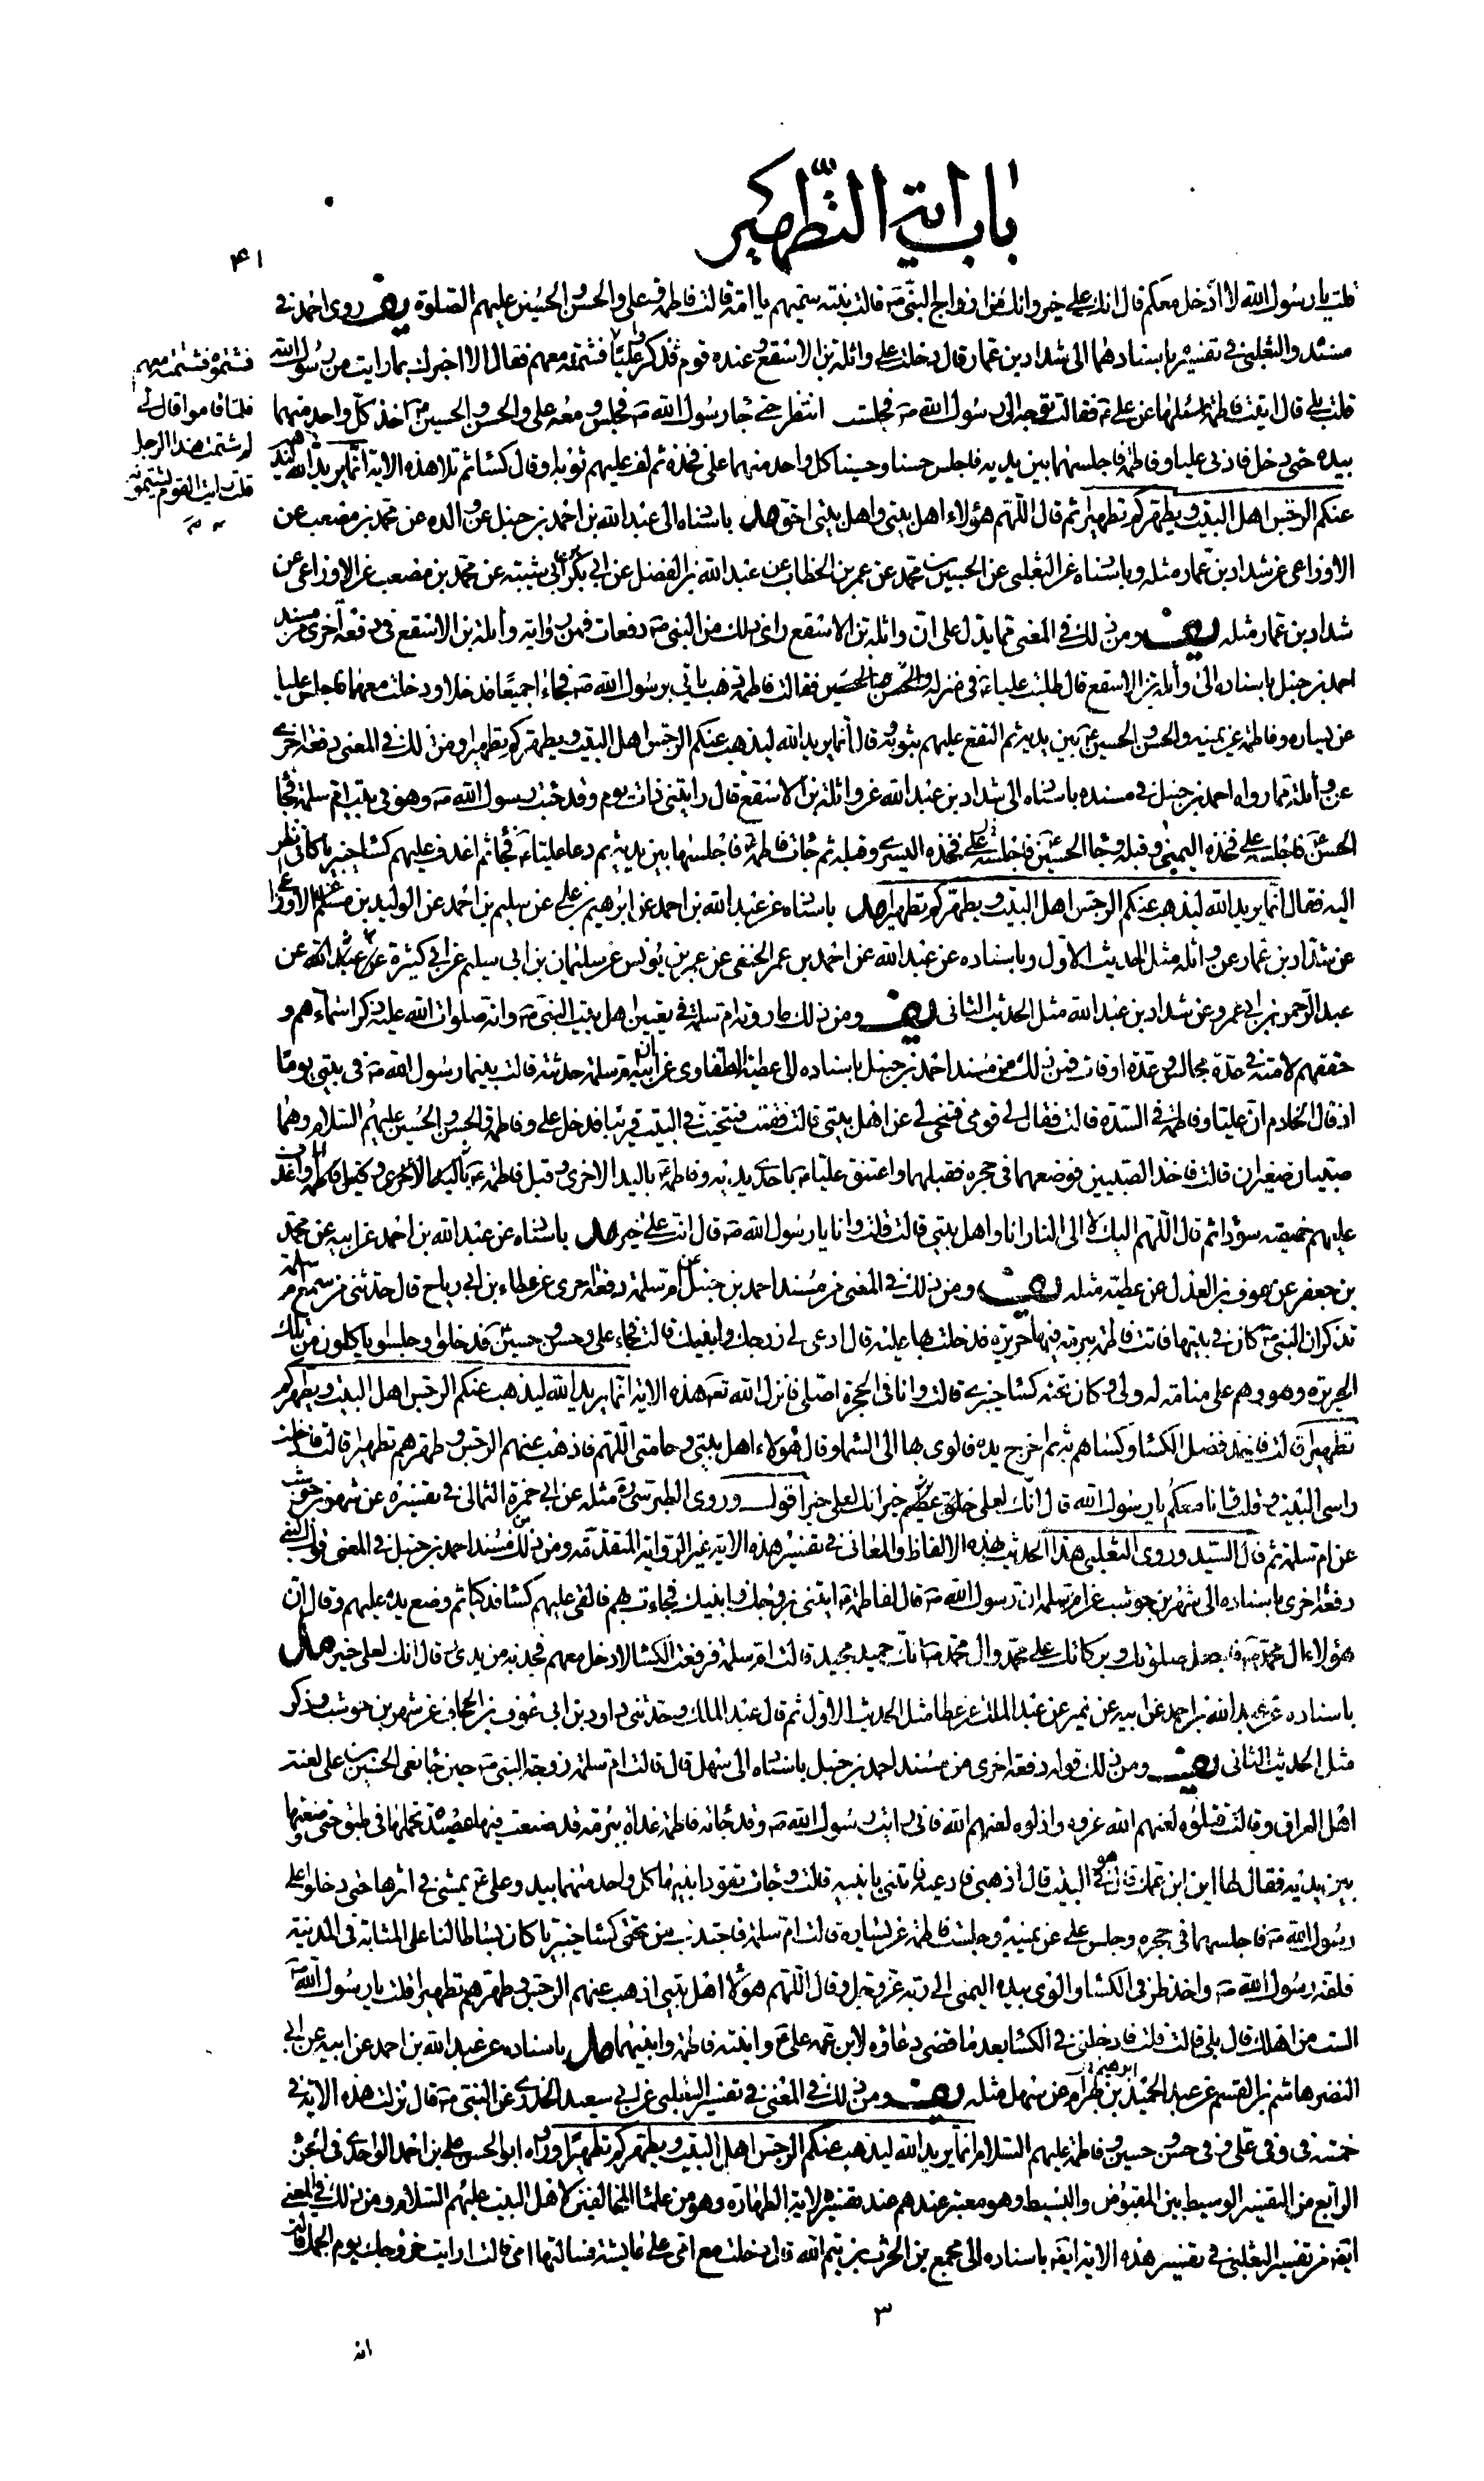 باب اية التطهير
۴۱
قلت يا رسول الله الا ادخل معكم قال انك على خير وانك من ازواج النبي ص قالت بنته سميهم يا امة قالت فاطمة وعلى والحسن والحسين عليهم الصلوة يف روى احمد في
مسنده والثعلبي في تفسيره باسنادهما الى شداد بن عمار قال دخلت على واثلة بن الاسقع وعنده قوم فذكروا عليا فشتمته معهم فقال الا اخبرك بما رايت من رسول الله
فشتموه فشتمته معهم
فلما قاموا قال لي
لم شتمت هذا الرجل
قلت رايت القوم يشتمونه
قلت بلى قال اتيت فاطمة اسئلها عن على ع فقالت توجه الى رسول الله ص فجلست انتظر حتى جاء رسول الله ص فجلس ومعه على والحسن والحسين ع اخذ كل واحد منهما
بيده حتى دخل فادنى عليا وفاطمة فاجلسهما بين يديه فاجلس حسنا وحسينا كل واحد منهما على فخذه ثم لف عليهم ثوبه او قال كساء ثم تلا هذه الاية انما يريد الله ليذهب
عنكم الرجس اهل البيت ويطهركم تطهيرا ثم قال اللهم هؤلاء اهل بيتي واهل بيتي احق مد باسناده الى عبد الله بن احمد بن حنبل عن والده عن محمد بن مصعب عن
الاوزاعى عن شداد بن عمار مثله وباسناده عن الثعلبى عن الحسين بن محمد عن عمر بن الخطاب عن عبد الله بن الفضل عن ابي بكر بن ابي شيبة عن محمد بن مصعب عن الاوزاعى عن
شداد بن عمار مثله يف ومن ذلك في المعنى مما يدل على ان واثلة بن الاسقع راى ذلك من النبي ص دفعات فمن رواية واثلة بن الاسقع في دفعة اخرى من مسند
احمد بن حنبل باسناده الى واثلة بن الاسقع قال طلبت عليا ع في منزله فقالت فاطمة ذهب ياتى برسول الله ص فجاءا جميعا فدخلا ودخلت معهما فاجلس عليا
عن يساره وفاطمة عن يمينه والحسن والحسين ع بين يديه ثم التفع عليهم بثوبه وقال انما يريد الله ليذهب عنكم الرجس اهل البيت ويطهركم تطهيرا ومن ذلك في المعنى دفعة اخرى
عن واثلة مما رواه احمد بن حنبل في مسنده باسناده الى شداد بن عبد الله عن واثلة بن الاسقع قال رايتنى ذات يوم وقد جئت رسول الله ص وهو في بيت ام سلمة فجاء
الحسن ع فاجلسه على فخذه اليمنى وقبله وجاء الحسين ع فاجلسه على فخذه اليسرى وقبله ثم جاءت فاطمة فاجلسها بين يديه ثم دعا عليا ع فجاء ثم اغدف عليهم كساء خيبريا كانى انظر
اليه فقال انما يريد الله ليذهب عنكم الرجس اهل البيت ويطهركم تطهيرا مد باسناده عن عبد الله بن احمد عن ابراهيم بن على عن سليم بن احمد عن الوليد بن مسلم عن الاوزاعى
عن شداد بن عمار عن واثلة مثل الحديث الاول وباسناده عن عبد الله عن احمد بن عمر الحنفى عن عمر بن يونس عن سليمان بن ابي سليم عن ابي كثيرة عن عبد الله عن
عبد الرحمن بن ابي عمرو عن شداد بن عبد الله مثل الحديث الثانى يف ومن ذلك ما روته ام سلمة في تعيين اهل بيت النبي ص وانه صلوات الله عليه ذكر اسماءهم و
حققهم لامته في عدة مجالس وعدة اوقات فمن ذلك من مسند احمد بن حنبل باسناده الى عطية الطفاوى عن ابيه ان ام سلمة حدثته قالت بينما رسول الله ص في بيتى يوما
اذ قال الخادم ان عليا وفاطمة في السدة قالت فقال لي قومى فتنحى لي عن اهل بيتى قالت فقمت فتنحيت في البيت قريبا فدخل على وفاطمة والحسن والحسين عليهم السلام وهما
صبيان صغيران قالت فاخذ الصبيين فوضعهما في حجره فقبلهما واعتنق عليا ع باحدى يديه وفاطمة ع باليد الاخرى وقبل فاطمة ع واغدف
عليهم خميصة سوداء ثم قال اللهم اليك لا الى النار انا واهل بيتى قالت قلت وانا يا رسول الله ص قال انت على خير مد باسناده عن عبد الله بن احمد عن ابيه عن محمد
بن جعفر عن عوف بن العدل عن عطية مثله يف ومن ذلك في المعنى من مسند احمد بن حنبل عن ام سلمة دفعة اخرى عن عطاء بن ابي رباح قال حدثنى من سمع ام سلمة
تذكر ان النبي ص كان في بيتها فاتت فاطمة ببرمة فيها حريرة فدخلت بها عليه قال ادعى لي زوجك وابنيك قالت فجاء على وحسن وحسين ع فدخلوا وجلسوا ياكلون من تلك
الحريرة وهو وهم على منامة له ولى وكان تحته كساء خيبرى قالت وانا في الحجرة اصلى فانزل الله تعه هذه الاية انما يريد الله ليذهب عنكم الرجس اهل البيت ويطهركم
تطهيرا قالت فاخذ فضل الكساء وكساهم به ثم اخرج يده فالوى بها الى السماء وقال هؤلاء اهل بيتى وحامتى اللهم فاذهب عنهم الرجس وطهرهم تطهيرا قالت فادخلت
راسى البيت وقلت وانا معكم يا رسول الله قال انك لعلى خلق عظيم خير انك لعلى خير اقول وروى الطبرسى ره مثله عن ابي حمزة الثمالى في تفسيره عن شهر بن حوشب
عن ام سلمة ثم قال السيد وروى الثعلبى هذا الحديث بهذه الالفاظ والمعانى في تفسير هذه الاية غير الرواية المتقدمة ومن ذلك من مسند احمد بن حنبل في المعنى
دفعة اخرى باسناده الى شهر بن حوشب عن ام سلمة ان رسول الله ص قال لفاطمة ع ايتنى بزوجك وابنيك فجاءت بهم فالقى عليهم كساء فدكيا ثم وضع يده عليهم وقال ان
هؤلاء ال محمد ص فاجعل صلوتك وبركاتك على محمد وال محمد ص انك حميد مجيد قالت ام سلمة فرفعت الكساء لادخل معهم فجذبه من يدى وقال انك لعلى خير مد
باسناده عن عبد الله بن احمد عن ابيه عن نمير عن عبد الملك عن عطا مثل الحديث الاول ثم قال عبد الملك وحدثنى داود بن ابى عوف بن الحجاف عن شهر بن حوشب وذكر
مثل الحديث الثانى يف ومن ذلك قوله دفعة اخرى من مسند احمد بن حنبل باسناده الى سهل قال قالت ام سلمة زوجة النبي ص حين جاء نعى الحسين بن على لعنت
اهل العراق وقالت قتلوه لعنهم الله غروه واذلوه لعنهم الله فانى رايت رسول الله ص وقد جائته فاطمة غداة ببرمة قد صنعت فيها عصيدة تحملها في طبق حتى وضعتها
بين يديه فقال لها اين ابن عمك قالت هو في البيت قال اذهبى فادعيه فاتنى بابنيه قالت وجاءت تقود ابنيها كل واحد منهما بيد وعلى ع يمشى في اثرها حتى دخلوا على
رسول الله ص فاجلسهما في حجره وجلس على عن يمينه وجلست فاطمة عن يساره قالت ام سلمة فاجتذب من تحتى كساء خيبريا كان بساطا لنا على المثابة في المدينة
فلفه رسول الله ص واخذ طرفى الكساء والوى بيده اليمنى الى ربه عز وجل وقال اللهم هؤلاء اهل بيتى اذهب عنهم الرجس وطهرهم تطهيرا قلت يا رسول الله ص
الست من اهلك قال بلى قالت قلت فادخلنى في الكساء بعد ما قضى دعاؤه لابن عمه على ع وابنته فاطمة وابنيهما مد باسناده عن عبد الله بن احمد عن ابيه عن ابي
النضر هاشم بن القسم عن عبد الحميد بن بهرام عن سهل مثله يف ومن ذلك في المعنى في تفسير الثعلبى عن ابي سعيد الخدرى عن النبي ص قال نزلت هذه الاية في
خمسة في وفى على وفى حسن وحسين وفاطمة عليهم السلام انما يريد الله ليذهب عنكم الرجس اهل البيت ويطهركم تطهيرا ورواه ابو الحسن على بن احمد الواحدى في الجزء
الرابع من التفسير الوسيط بين المقبوض والبسيط وهو معتبر عندهم عند تفسيره لاية الطهارة وهو من علماء المخالفين لاهل البيت عليهم السلام ومن ذلك في المعنى
ايضه من تفسير الثعلبى في تفسير هذه الاية ايضه باسناده الى مجمع بن الحرث بن تيم الله قال دخلت مع امى على عايشة فسالتها امى قالت ارايت خروجك يوم الجمل قالت
۳
انه